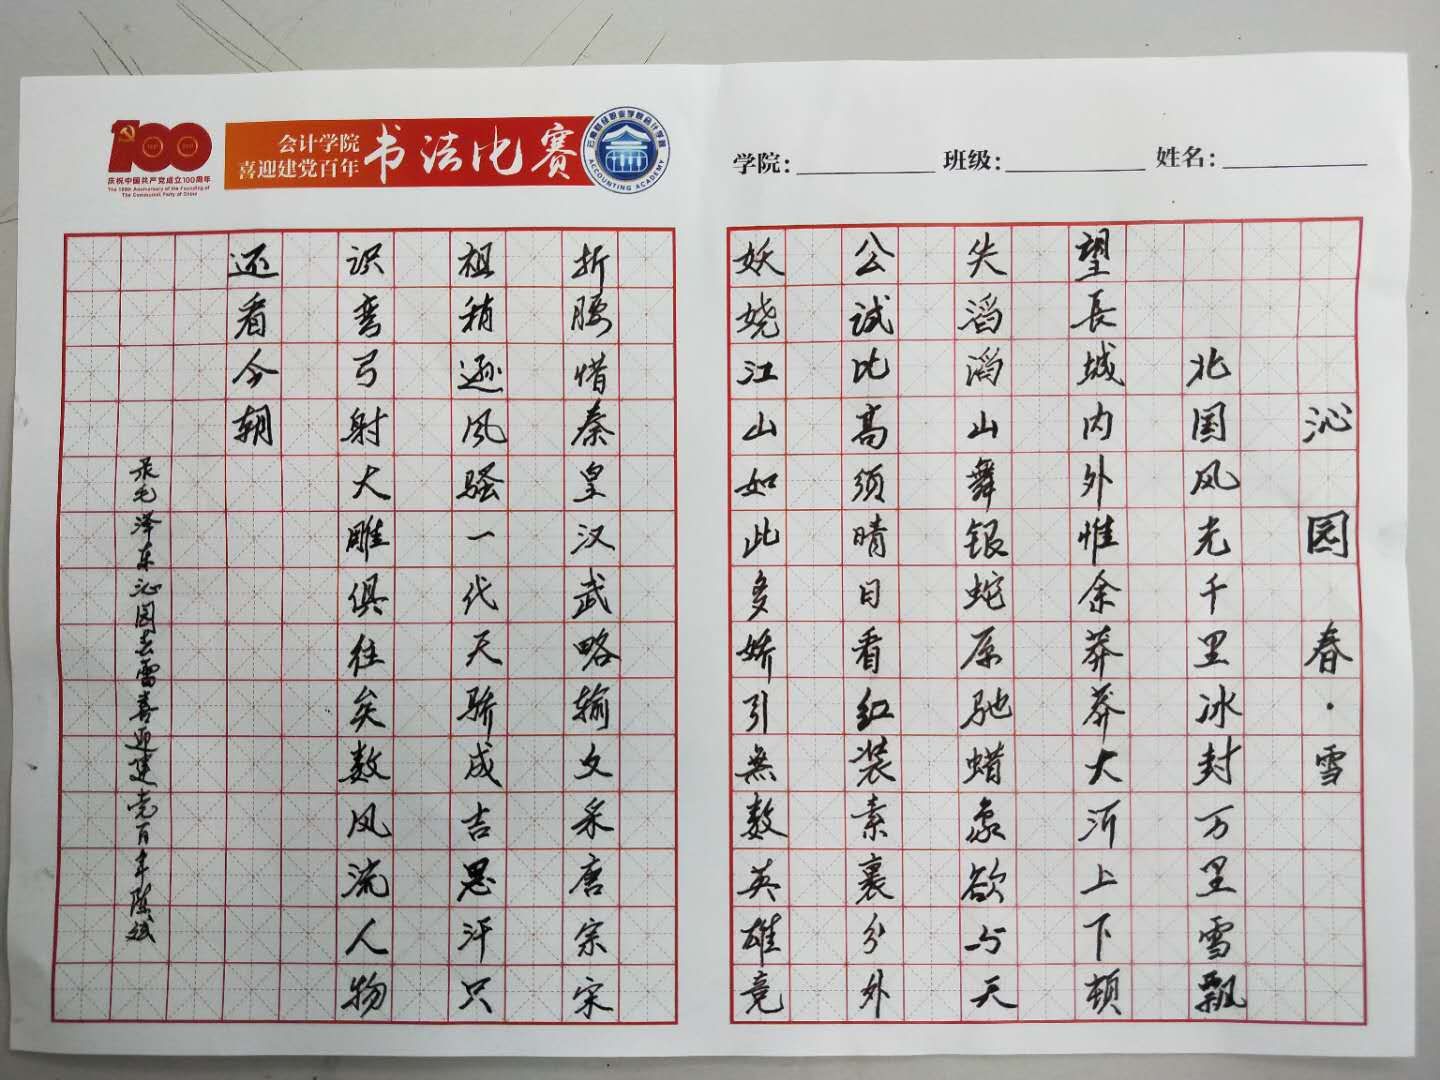 100
庆祝中国共产党成立100周年
The 100th Anniversary of the Founding of
The Communist Party of China
会计学院
喜迎建党百年
书法比赛
ACCOUNTING ACADEMY
学院： 班级： 姓名：
沁园春·雪
北国风光千里冰封万里雪飘
望長城内外惟余莽莽大河上下顿
失滔滔山舞银蛇原驰蜡象欲与天
公试比高须晴日看红装素裹分外
妖娆江山如此多娇引無数英雄竞
折腰惜秦皇汉武略输文采唐宗宋
祖稍逊风骚一代天骄成吉思汗只
识弯弓射大雕俱往矣数风流人物
还看今朝
录毛泽东沁园春雪喜迎建党百年陈斌